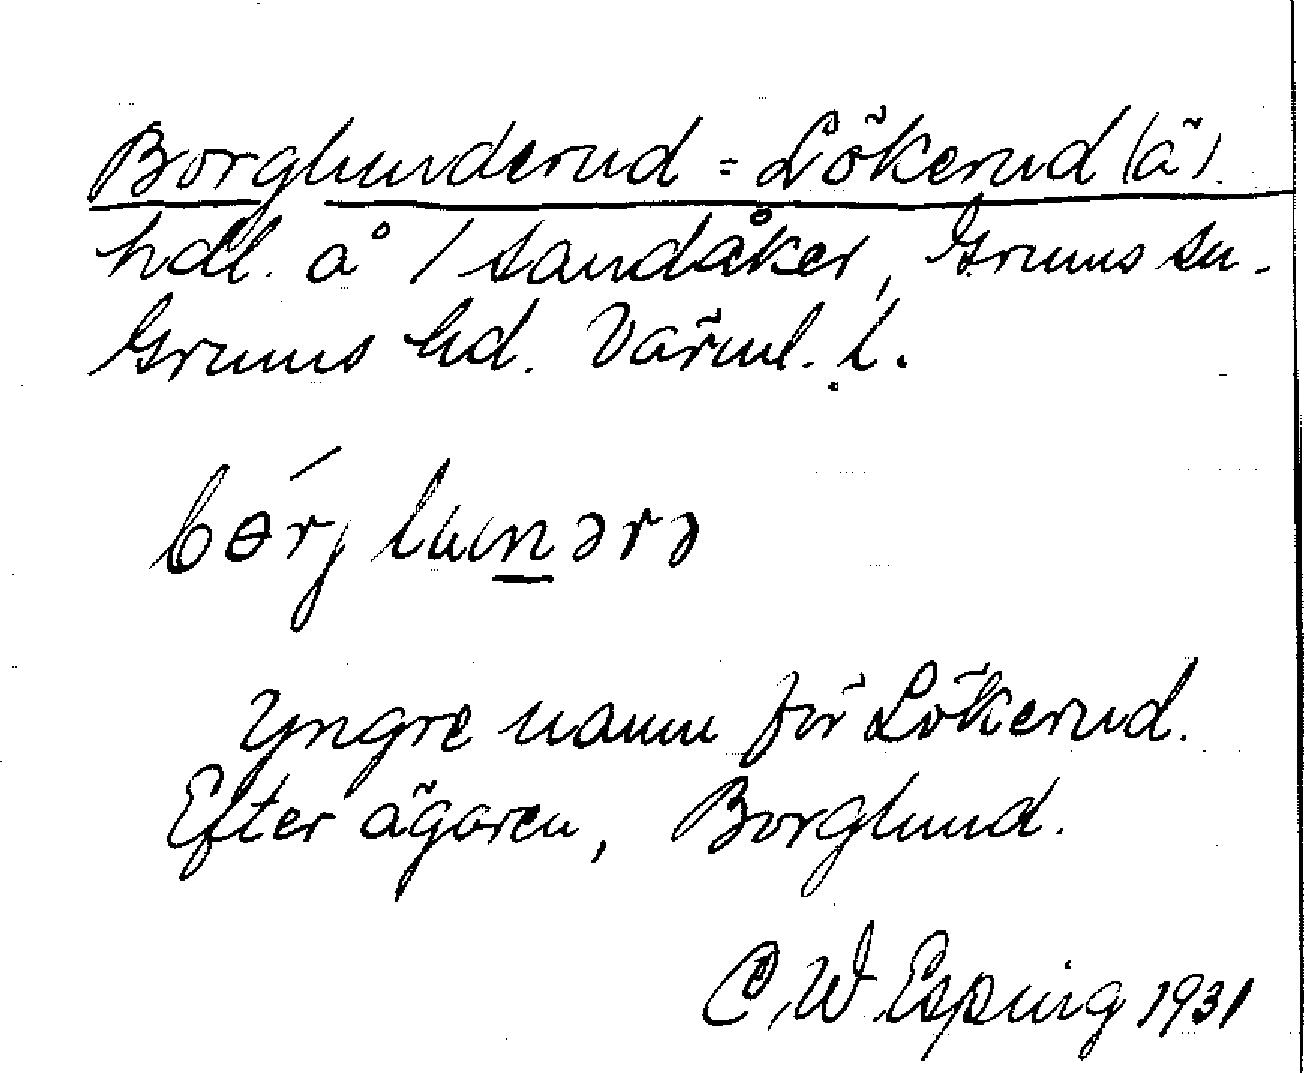 Borglunderud = Lökerud (ä).
hdl. å 1 Sandåker, Grums sn.
Grums hd. Värml. l.
bɵrglunərə
Yngre namn för Lökerud.
Efter ägaren, Borglund.
C. W Esping 1931